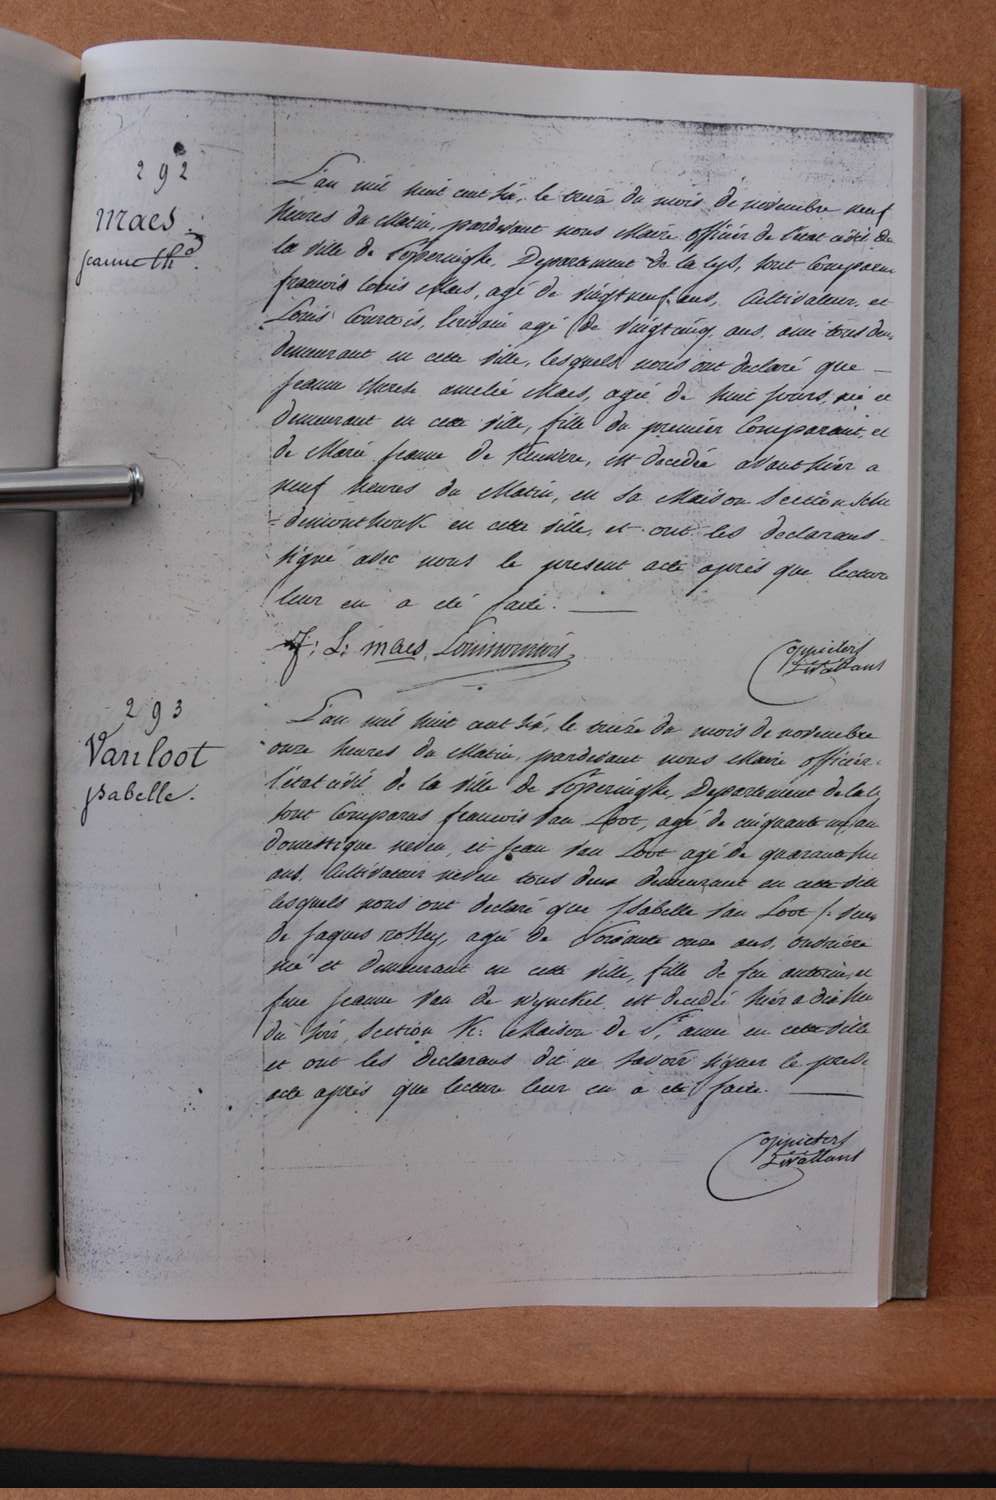 292
Maes
Jeanne Th.
L'an mil huit cent six, le treize du mois de novembre neuf
heures du Matin, pardevant nous Maire officier de l'état civil de
la ville de Poperinghe, Departement de la Lys, sont Comparu
francois Louis Maes, agé de vingtneuf ans, Cultivateur, et
Louis Courtois, Ecrivain agé de vingtcinq ans, ami tous deux
demeurant en cette ville, lesquels nous ont declaré que —
jeanne therese amelie Maes, agée de huit jours, née et
demeurant en cette ville, fille du premier Comparant, et
de Marie jeanne de Keuwere, est decedée avanthier a
neuf heures du Matin, en sa Maison Section
en cette ville, et ont les declarans
signé avec nous le present acte après que lecture
leur en a eté faite. —
F: L: maes.
Coppieters
Stivallant
293
Van loot
ysabelle.
L'an mil huit cent six, le treize du mois de novembre
onze heures du Matin, pardevant nous Maire officier
l'état civil de la ville de Poperinghe, Departement de la L
sont Comparus francois Van Loot, agé de cinquante un an
domestique neveu, et jean Van Loot agé de quarante
ans, Cultivateur neveu tous deux demeurant en cette ville
lesquels nous ont declaré que ysabelle Van Loot
de jaques rossey, agée de soixante onze ans, ouvriere
née et demeurant en cette ville, fille de feu antoine, et
feue jeanne Van de wynckel est decedé hier a dix he
du soir, Section K: Maison de Ste anne en cette ville
et ont les declarans dit ne savoir signer le prese
acte après que lecture leur en a eté faite. —
Coppieters
Stivallant